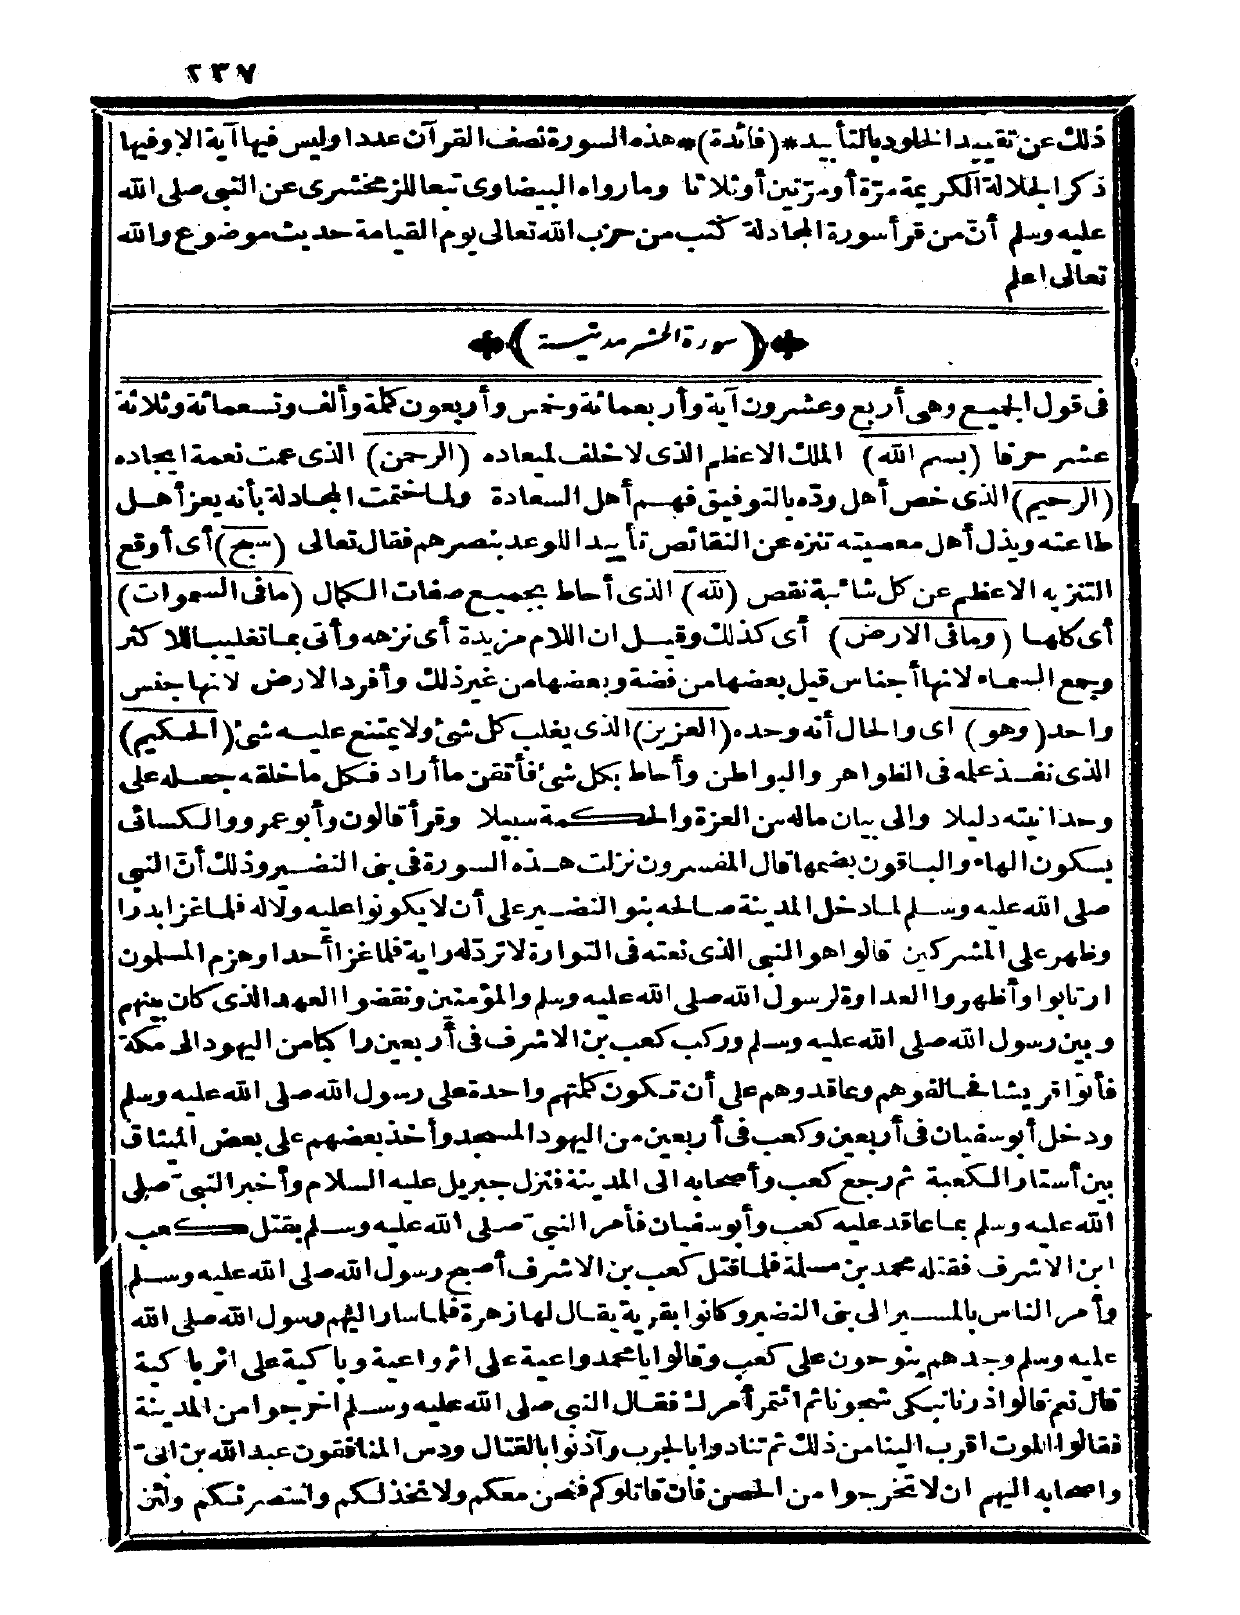 ٢٣٧
ذلك عن تقييد الخلود بالتأبيد *(فائدة)* هذه السورة نصف القرآن عددا وليس فيها آية الا وفيها
ذكر الجلالة الكريمة مرّة أو مرّتين أو ثلاثا وما رواه البيضاوى تبعا للزمخشرى عن النبى صلى الله
عليه وسلم أنّ من قرأ سورة المجادلة كتب من حزب الله تعالى يوم القيامة حديث موضوع والله
تعالى اعلم
(سورة الحشر مدنية)
فى قول الجميع وهى أربع وعشرون آية وأربعمائة وخمس وأربعون كلمة وألف وتسعمائة وثلاثة
عشر حرفا (بسم الله) الملك الاعظم الذى لا خلف لميعاده (الرحمن) الذى عمت نعمة ايجاده
(الرحيم) الذى خص أهل ودّه بالتوفيق فهم أهل السعادة ولما ختمت المجادلة بأنه يعز أهل
طاعته ويذل أهل معصيته تنزه عن النقائص تأييد اللوعد بنصرهم فقال تعالى (سبح) أى أوقع
التنزيه الاعظم عن كل شائبة نقص (لله) الذى أحاط بجميع صفات الكمال (ما فى السموات)
أى كلها (وما فى الارض) أى كذلك وقيل ان اللام مزيدة أى نزهه وأتى بما تغليبا للاكثر
وجمع السماء لانها أجناس قيل بعضها من فضة وبعضها من غير ذلك وأفرد الارض لانها جنس
واحد (وهو) اى والحال أنه وحده (العزيز) الذى يغلب كل شئ ولا يمتنع عليه شئ (الحكيم)
الذى نفذ علمه فى الظواهر والبواطن وأحاط بكل شئ فأتقن ما أراد فكل ما خلقه جعله على
وحدانيته دليلا والى بيان ماله من العزة والحكمة سبيلا وقرأ قالون وأبو عمرو والكسائى
بسكون الهاء والباقون بضمها قال المفسرون نزلت هذه السورة فى بنى النضير وذلك أنّ النبى
صلى الله عليه وسلم لما دخل المدينة صالحه بنو النضير على أن لا يكونوا عليه ولا له فلما غزا بدرا
وظهر على المشركين قالوا هو النبى الذى نعته فى التوارة لا تردّ له راية فلما غزا أحدا وهزم المسلمون
ارتابوا وأظهروا العداوة لرسول الله صلى الله عليه وسلم والمؤمنين ونقضوا العهد الذى كان بينهم
وبين رسول الله صلى الله عليه وسلم وركب كعب بن الاشرف فى أربعين راكبا من اليهود الى مكة
فأتوا قريشا فحالفوهم وعاقدوهم على أن تكون كلمتهم واحدة على رسول الله صلى الله عليه وسلم
ودخل أبو سفيان فى أربعين وكعب فى أربعين من اليهود المسجد وأخذ بعضهم على بعض الميثاق
بين أستار الكعبة ثم رجع كعب وأصحابه الى المدينة فنزل جبريل عليه السلام وأخبر النبىّ صلى
الله عليه وسلم بما عاقد عليه كعب وأبو سفيان فأمر النبىّ صلى الله عليه وسلم بقتل كعب
ابن الاشرف فقتله محمد بن مسلمة فلما قتل كعب بن الاشرف أصبح رسول الله صلى الله عليه وسلم
وأمر الناس بالمسير الى بنى النضير وكانوا بقرية يقال لها زهرة فلما سار اليهم رسول الله صلى الله
عليه وسلم وجدهم ينوحون على كعب وقالوا يا محمد واعية على اثر واعية وباكية على اثر باكية
قال نعم قالوا ذرنا نبكى شجونا ثم ائتمر أمرك فقال النبى صلى الله عليه وسلم اخرجوا من المدينة
فقالوا الموت اقرب الينا من ذلك ثم تنادوا بالحرب وآذنوا بالقتال ودس المنافقون عبد الله بن ابىّ
واصحابه اليهم ان لا تخرجوا من الحصن فان قاتلوكم فنحن معكم ولا نخذلكم ولننصرنكم ولئن